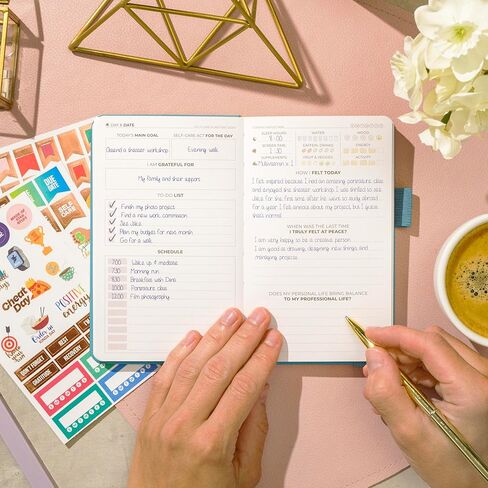 DAY & DATE
TODAY'S MAIN GOAL
SELF-CARE ACT FOR THE DAY
Attend a theater workshop
Evening walk
I AM GRATEFUL FOR
My family and their support
TO-DO LIST
Finish my photo project
Find a new work commission
See Jake
Plan my budget for next month
Go for a walk
SCHEDULE
7:00 Wake up & meditate
7:30 Morning run
Breakfast with Dina
Pantomime class
Film photography
SLEEP HOURS
8:00
WATER
MOOD
SCREEN TIME
1:30
CAFFEIN. DRINKS
ENERGY
SUPPLEMENTS
Multivitamin x 1
FRUIT & VEGGIES
ACTIVITY
HOW I FELT TODAY
I felt inspired because I had an amazing pantomime class
and enjoyed the theater workshop. I was thrilled to see
Jake for the first time after
for a year. I felt anxious about my project, but I guess
that's normal.
WHEN WAS THE LAST TIME
I TRULY FELT AT PEACE?
I am very happy to be a creative person.
I am good at drawing, designing new things, and
managing projects.
DOES MY PERSONAL LIFE BRING BALANCE
TO MY PROFESSIONAL LIFE?
DUE DATE
SELF CARE
Cheat DAY
POSITIVE energy
Order in
DON'T FORGET
BEST
RECOVERY
GRATITUDE